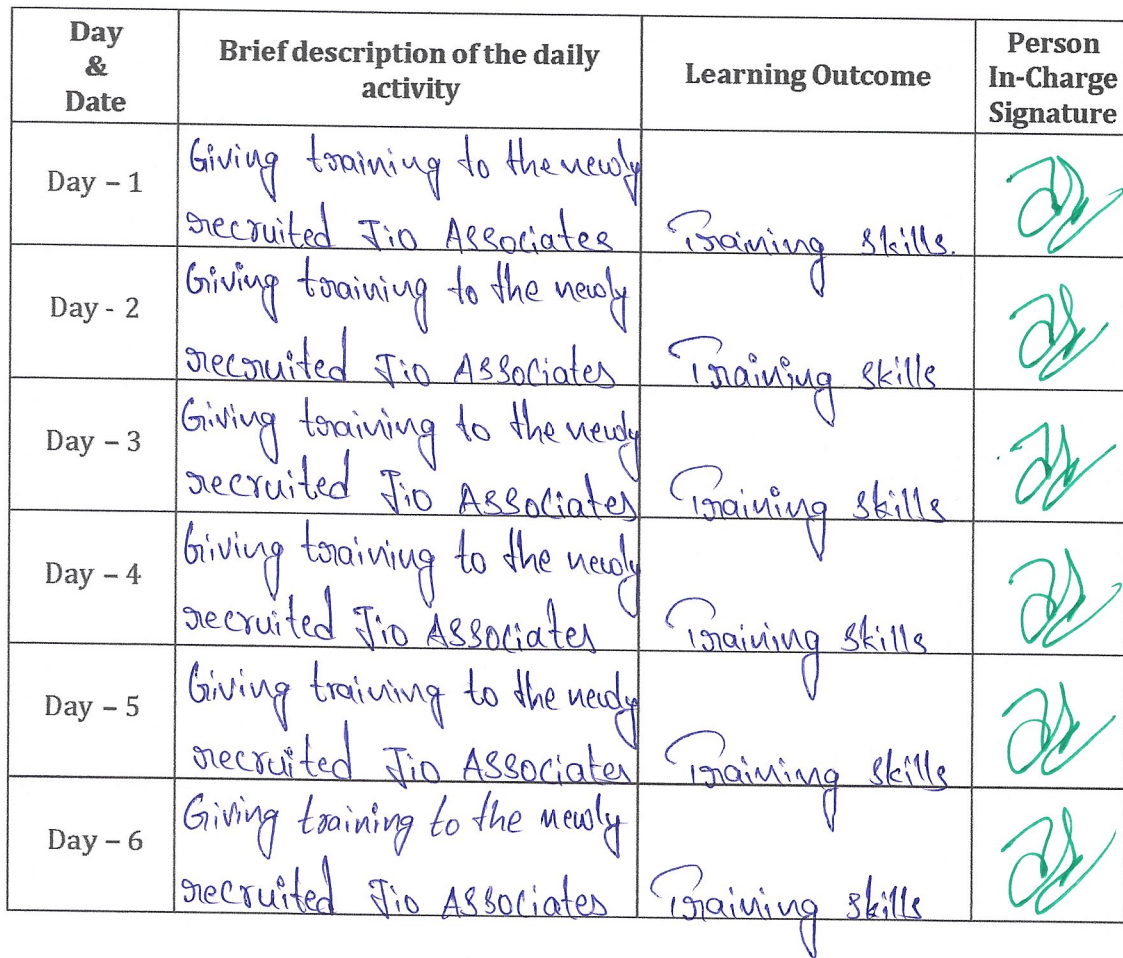 Day
&
Date
Brief description of the daily
activity
Learning Outcome
Person
In-Charge
Signature
Day – 1
Giving training to the newly
recruited Jio Associates
Training skills.
Day - 2
Giving training to the newly
recruited Jio Associates
Training skills
Day – 3
Giving training to the newly
recruited Jio Associates
Training skills
Day – 4
Giving training to the newly
recruited Jio Associates
Training skills
Day – 5
Giving training to the newly
recruited Jio Associates
Training skills
Day – 6
Giving training to the newly
recruited Jio Associates
Training skills